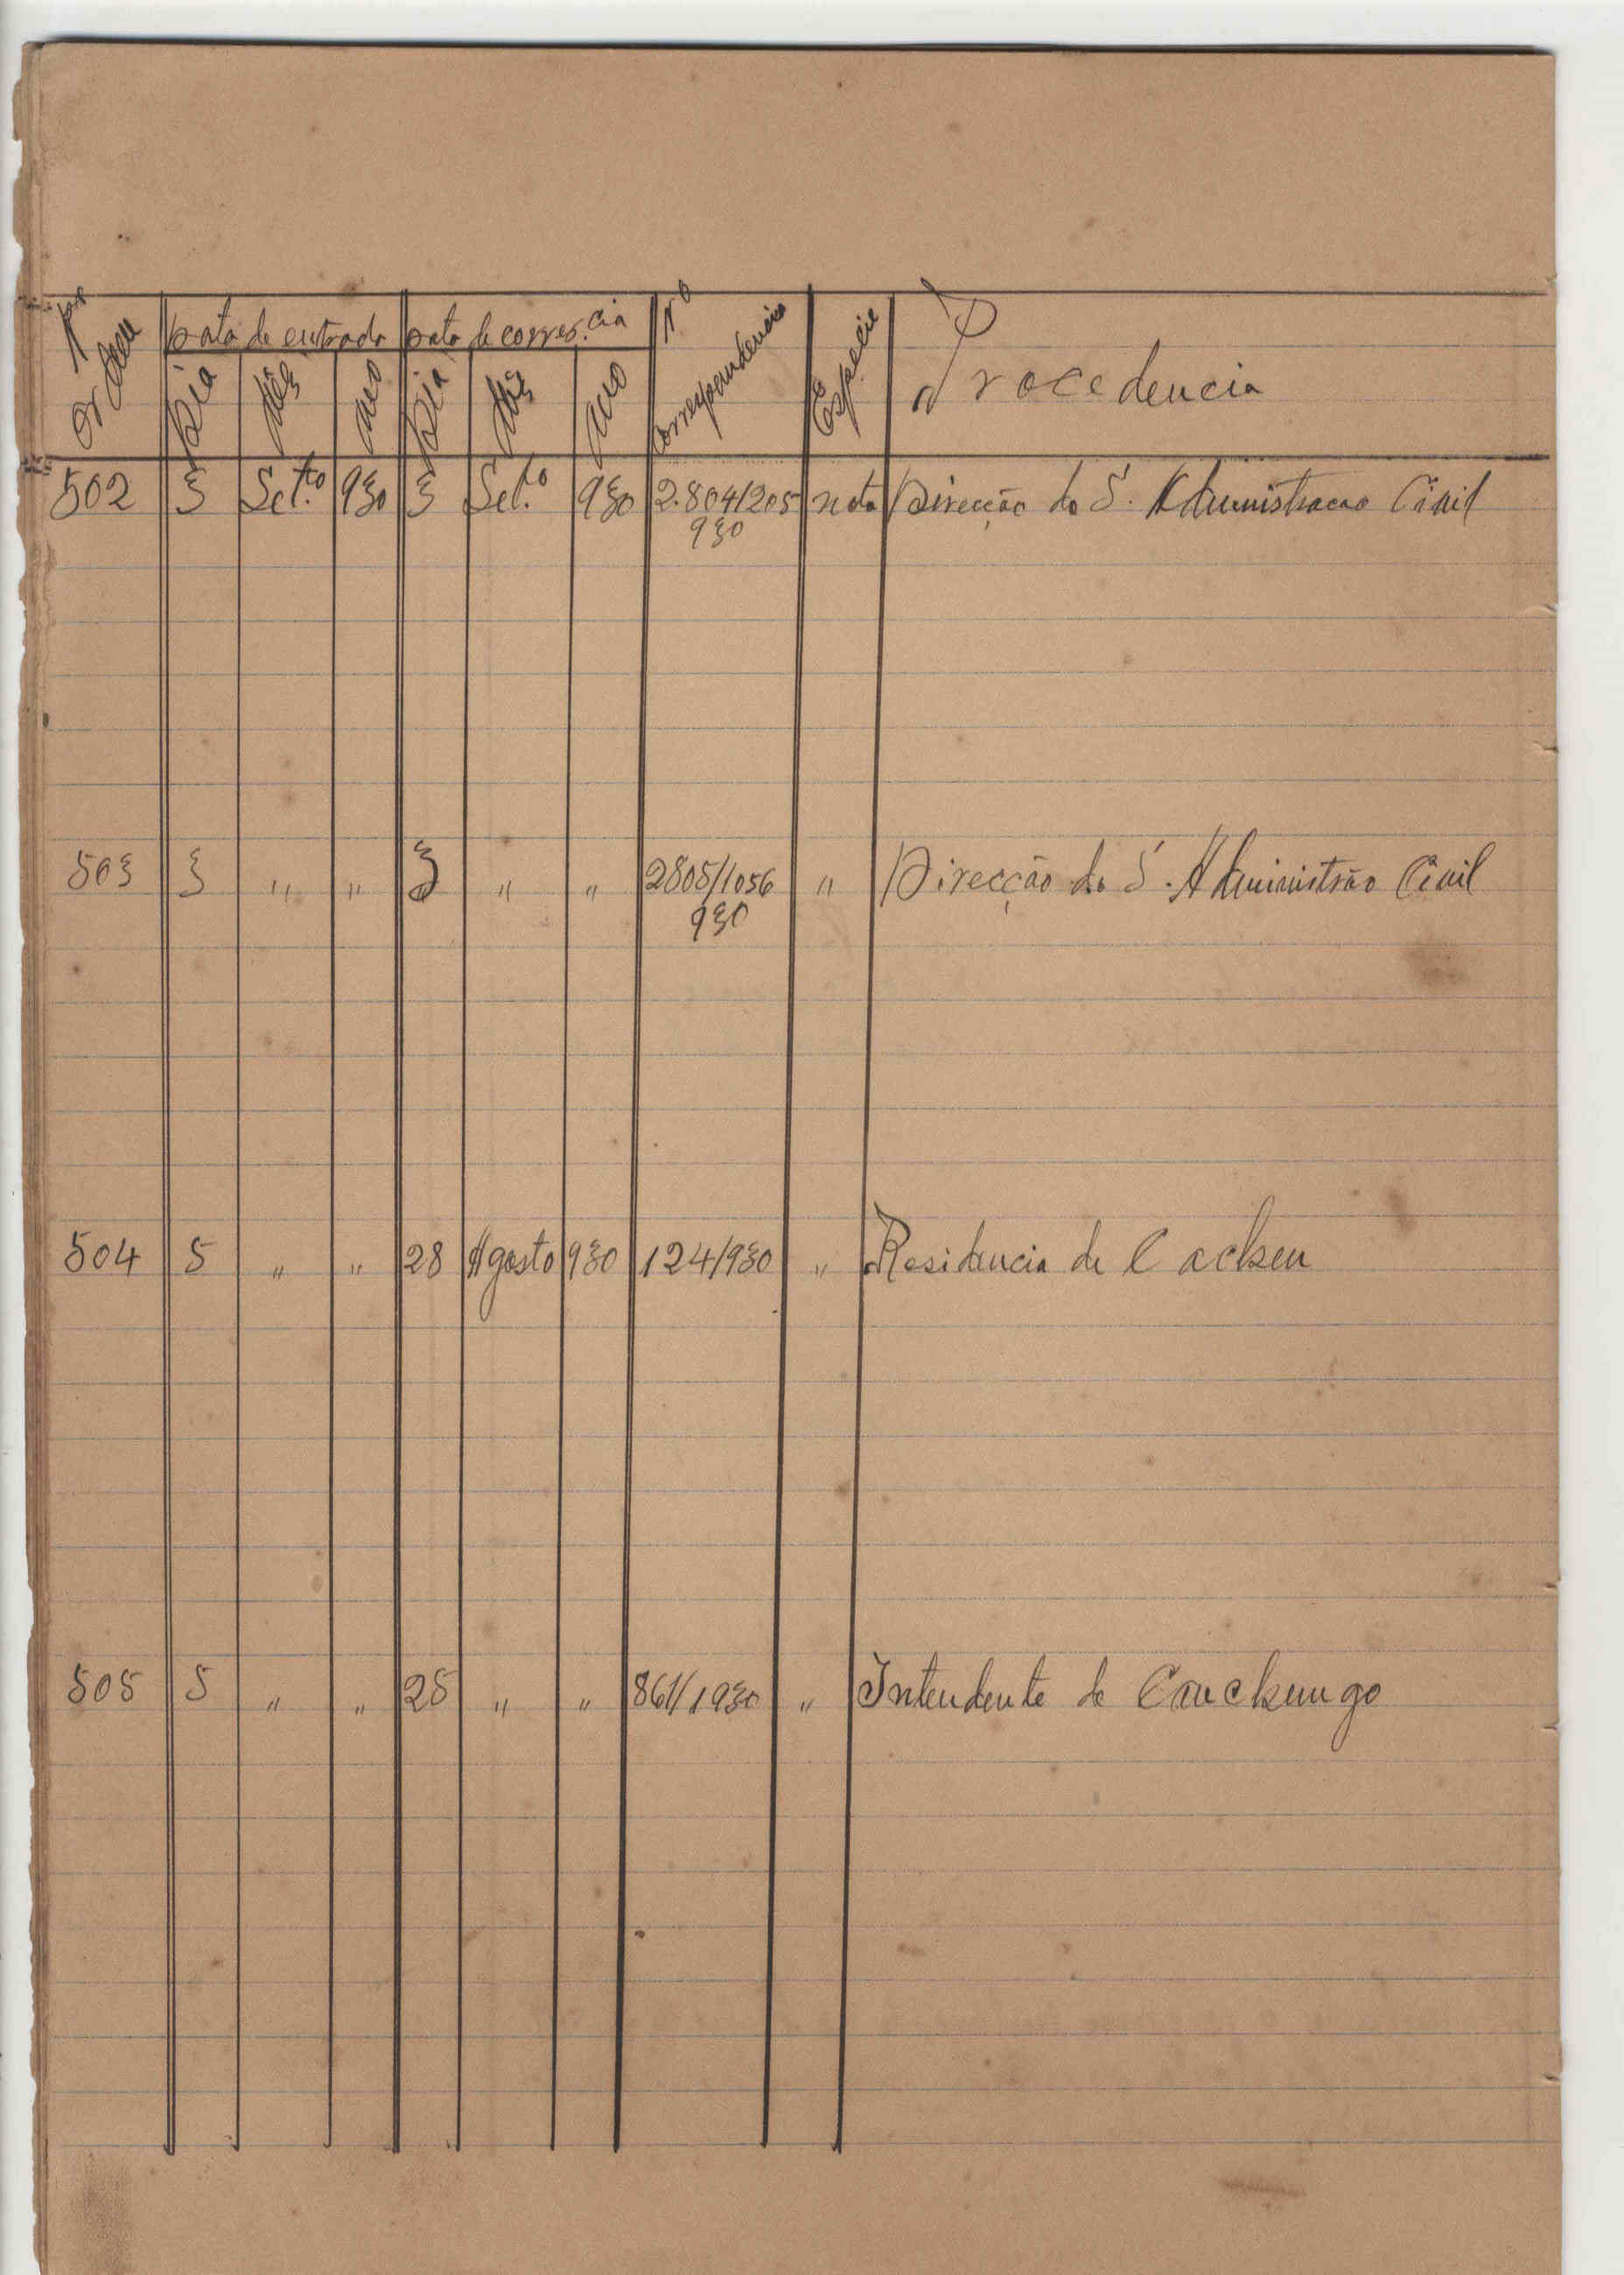 Nº Ordem Data de entrada Data de corres.cia Nº correspondencia Especie Procedencia
Dia Mês Ano Dia Mês Ano
502 3 Set.º 930 3 Set.º 930 2.804/205 nota Direcção do S. Administracao Civil
930
503 3 " " 3 " " 2805/1056 " Direcção do S. Administrão Civil
930
504 5 " " 28 Agosto 930 124/930 " Residencia de Cacheu
505 5 " " 25 " " 861/1930 " Intendente de Canchungo